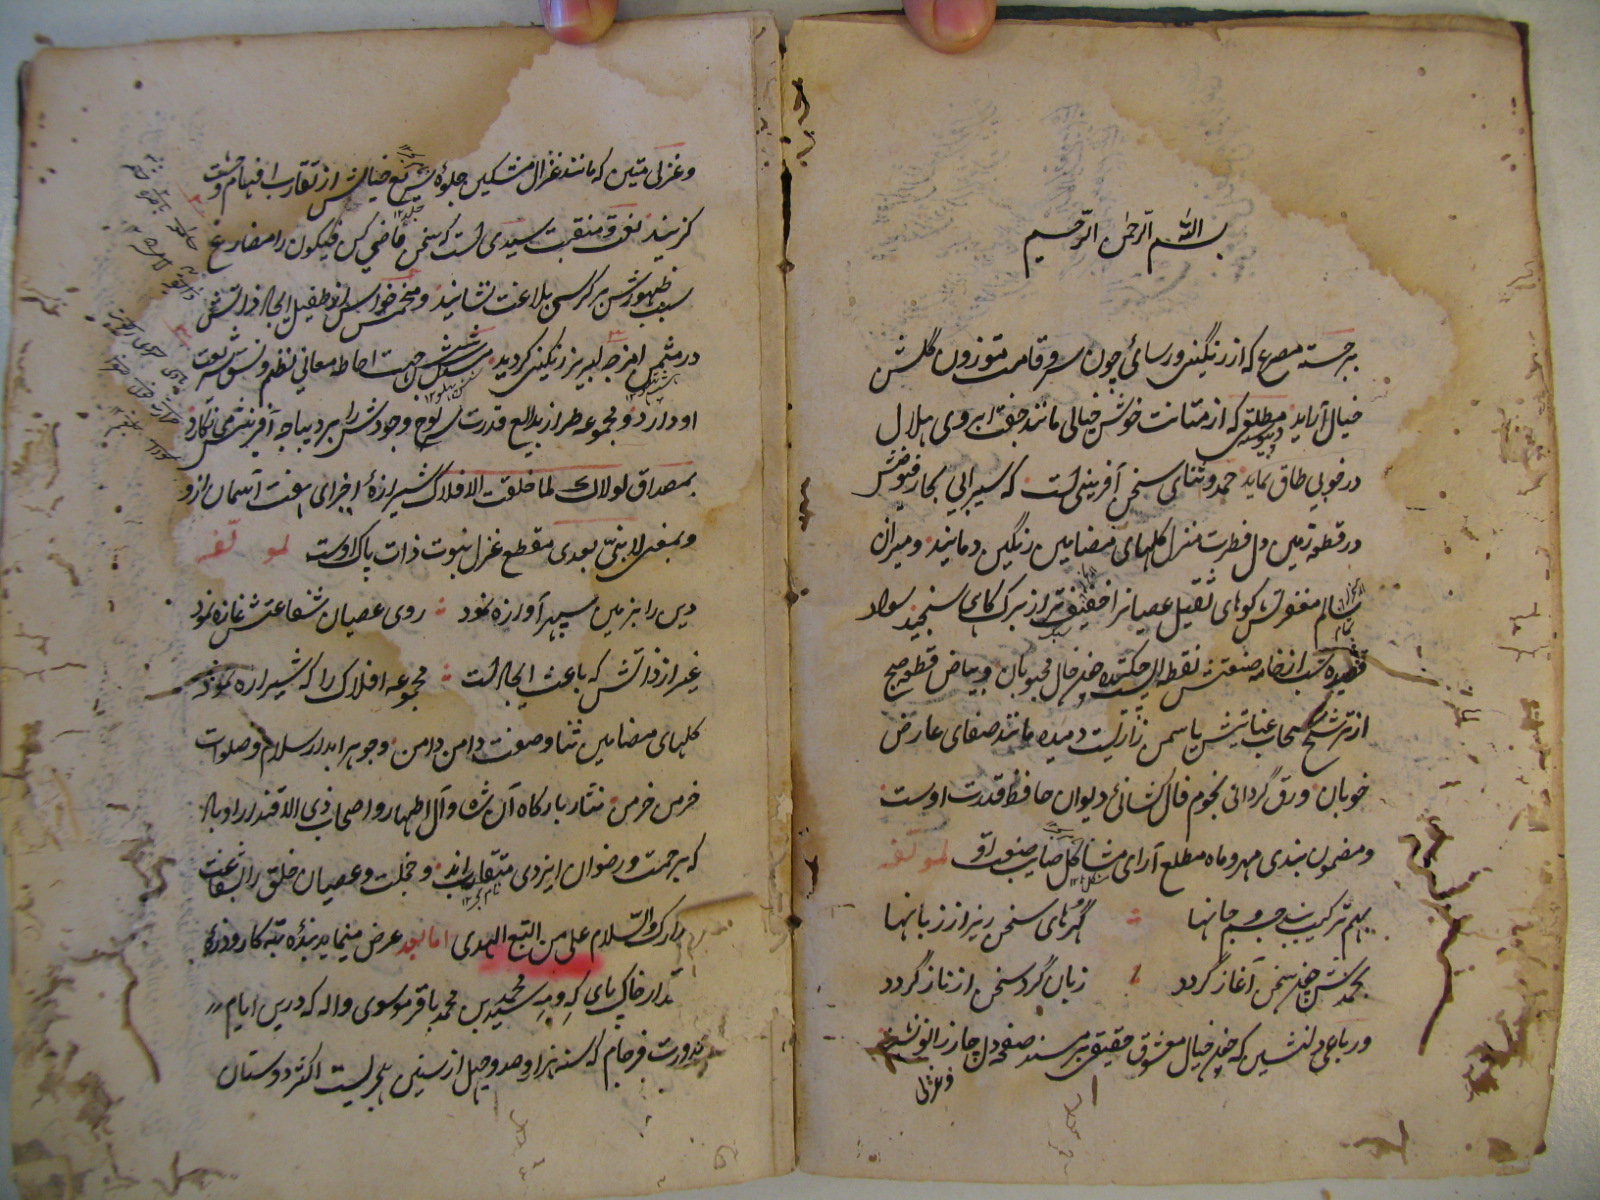 بسم الله الرحمن الرحیم
برجسته مصرعی که از رنگینی و رسائی چون سرو قامت موزون گلشن
خیال آراید مطلعی که از متانت خوش خیالی مانند جفت ابروی هلال
در خوبی طاق نماید حمد و ثنای سخن آفرینی است که سیرابی بحار فیوضش
در قطعه زمین دل فطرت منزل گلهای مضامین رنگین دمانید و میزان
سالم مغفرتش کوهای ثقیل عصیانرا خفیف تر از برگ کاهی سنجید سواد
قصیده شب از خامه صنعتش نقطه ایست چکیده چون خال محبوبان و بیاض قطعه صبح
از ترشح سحاب عنایتش یاسمن زاریست دمیده مانند صفای عارض
خوبان ورق گردانی نجوم فال گشائی دیوان حافظ قدرت اوست
و مضمون بندی مهر و ماه مطلع آرای صنعت او لمولفه
بهم ترکیب بند جسم و جانها گهرهای سخن ریز از زبانها
بحمدش چون سخن آغاز گردد زبان گرد سخن از ناز گردد
و رباعی دلنشین که چون خیال معشوق حقیقی بر مسند صفحه دل چار زانو نشیند
و غزلی
و غزلی متین که مانند غزال مشکین جلوهٔ سریع خیالش از تقارب افهام وحشت
گزیند نعت و منقبت سیدی است که سخن ماضی کن فیکون را مضارع
سبب ظهورش بر کرسی بلاغت نشانید و مخمس حواس انس از طفیل ایجاد ذاتش
در مثمن امزجه لبریز رنگینی گردید مسدس شش جهت احاطه معانی نظم و نسق شریعت
او دارد و مجموعه طراز بدایع قدرت سرلوح وجودش را بر دیباجه آفرینش نگارد
بمصداق لولاک لما خلقت الافلاک شیرازهٔ اجزای هفت آسمان ازو
و بمعنی لا نبی بعدی مقطع غزل نبوت ذات پاک اوست لمولفه
دین را بزمین سپهر آوازه نمود روی عصیان شفاعتش غازه نمود
غیر از ذاتش که باعث ایجاد است مجموعه افلاک را که شیرازه نمود
گلهای مضامین ثنا و صفت دامن دامن و جوهر آبدار سلام و صلوات
خرمن خرمن نثار بارگاه آن شه و آل اطهار و اصحاب ذی الاقتدار او باد
که برحمت و رضوان ایزدی متقارب اند و خجلت و عصیان خلق را بشفاعت
والسلام علی من التبع الهدی اما بعد عرض مینماید بندهٔ تبه کار و ذرهٔ
خاک پای که و مه سید محمد بن محمد باقر موسوی واله که درین ایام
کدورت فرجام که سنه هزار و صد و چهل از سنین هجریست اکثر دوستان